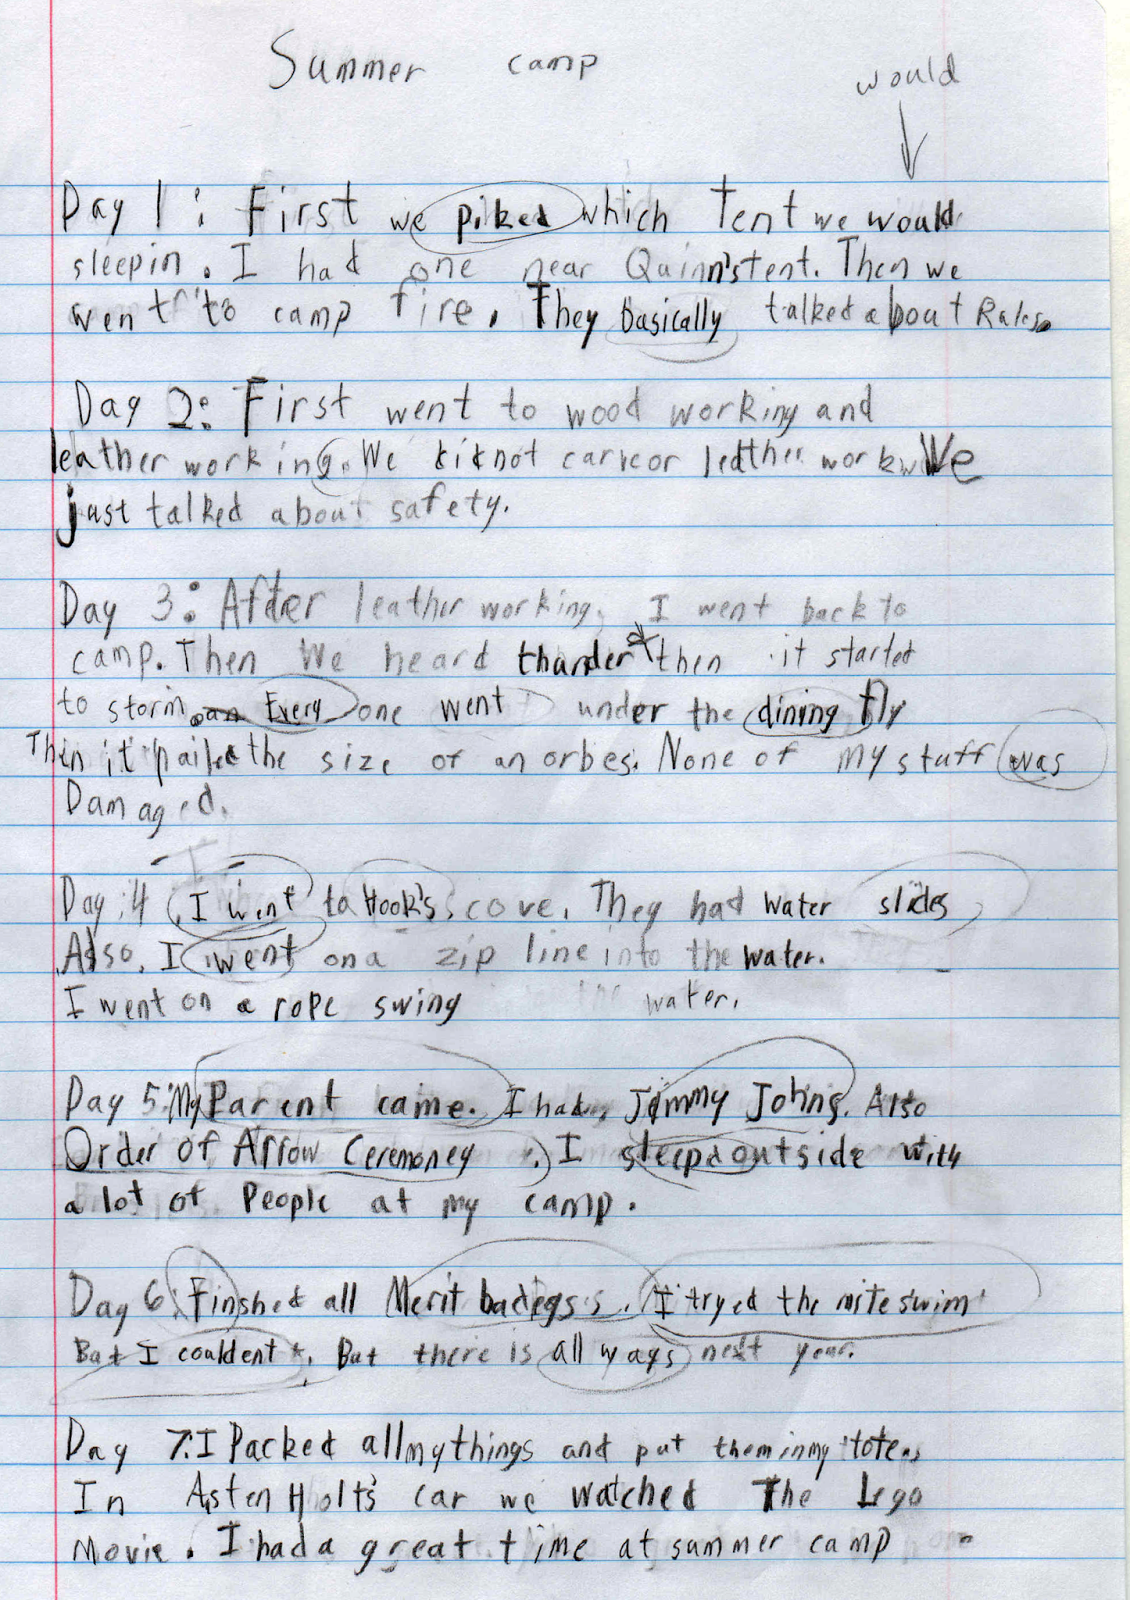 Summer camp
would
Day 1: First we piked which Tent we would
sleepin. I had one near Quinn'stent. Then we
went to camp fire. They basically talked about Rules.
Day 2: First went to wood working and
leather working. We not or leather work We
just talked about safety.
Day 3: After leather working, I went back to
camp. Then We heard thunder then it started
to storm. Every one went under the dining fly
Then it the size of an orbes. None of my stuff was
Damaged.
Day :4 I went to Hook's cove. They had water slides
Also, I went on a zip line into the water.
I went on a rope swing water.
Day 5: My Parent came. I had Jimmy Johns. Also
Order of Arrow Ceremoney . I sleepd outside with
a lot of People at my camp.
Day 6: Finshed all Merit . I tryed the mite swim
But I couldent. But there is all ways next year.
Day 7: I Packed all my things and put them in my tote.
In Asten Holt's car we watched The Lego
Movie. I had a great time at summer camp